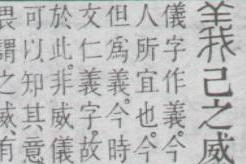 義己之威
儀字作義。今
人所宜也。今
但爲義。今時
文仁義字。故
於此。非威儀
可以知其意
畏謂之威。有